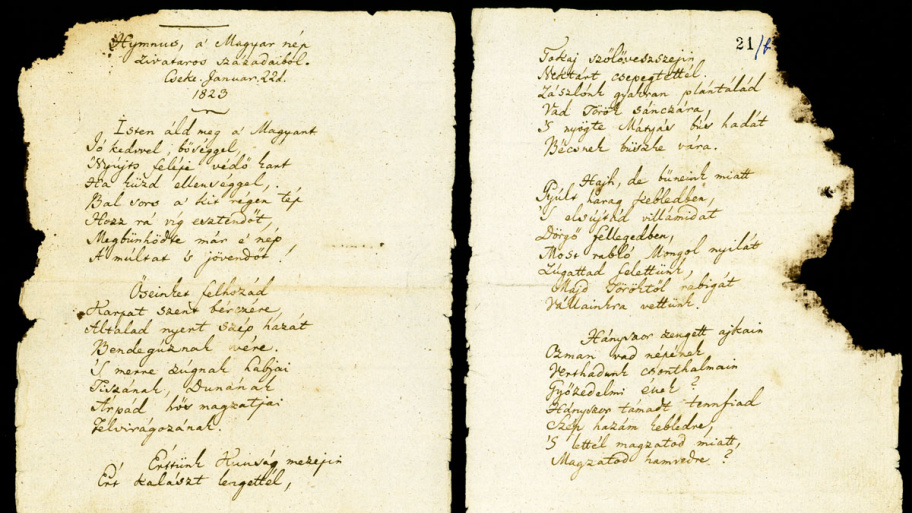 Hymnus, a' Magyar nép
zivataros századaiból.
Cseke. Januar. 22d.
1823
Isten áld meg a' Magyart
Jó kedvvel, bőséggel,
Nyújts feléje védő kart
Ha küzd ellenséggel,
Bal sors a' kit régen tép
Hozz rá víg esztendőt,
Megbünhödte már é nép
A' múltat 's jövendőt!
Őseinket felhozád
Kárpát szent bérczére,
Általad nyert szép hazát
Bendegúznak vére.
'S merre zugnak habjai
Tiszának, Dunának
Árpád hős magzatjai
Felvirágozának.
Értünk Kunság mezejin
Ért kalászt lengettél,
21/a
Tokaj szőlőveszszejin
Nektárt csepegtettél.
Zászlónk gyakran plántálád
Vad Török sánczára,
'S nyögte Mátyás bús hadát
Bécsnek büszke vára.
Hajh, de büneink miatt
Gyúlt harag kebledben,
'S elsújtád villámidat
Dörgő fellegedben,
Most rabló Mongol nyilát
Zúgattad felettünk,
Majd Töröktől rabigát
Vállainkra vettünk.
Hányszor zengett ajkain
Ozman vad népének
Vert hadunk csonthalmain
Győzedelmi ének?
Hányszor támadt tennfiad
Szép hazám kebledre,
'S lettél magzatod miatt,
Magzatod hamvedre?